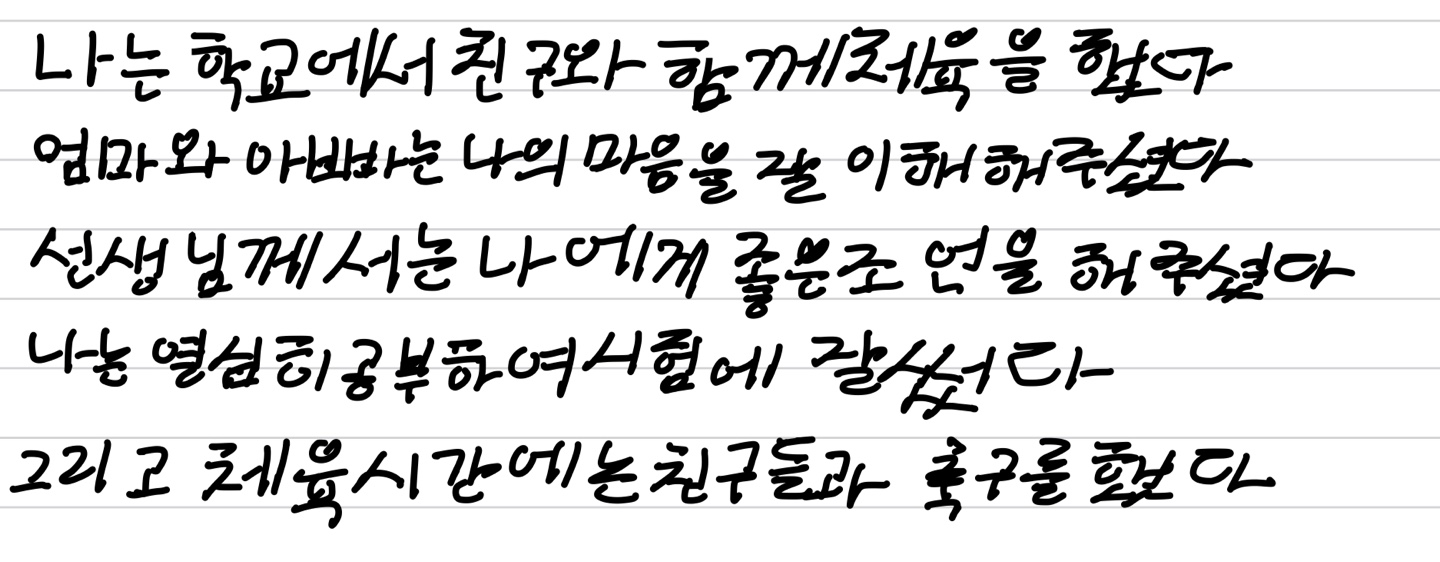 나는 학교에서 친구와 함께 체육을 했다
엄마와 아빠는 나의 마음을 잘 이해해주셨다
선생님께서는 나에게 좋은 조언을 해주셨다
나는 열심히 공부하여 시험에 잘 썼다
그리고 체육시간에는 친구들과 축구를 했다